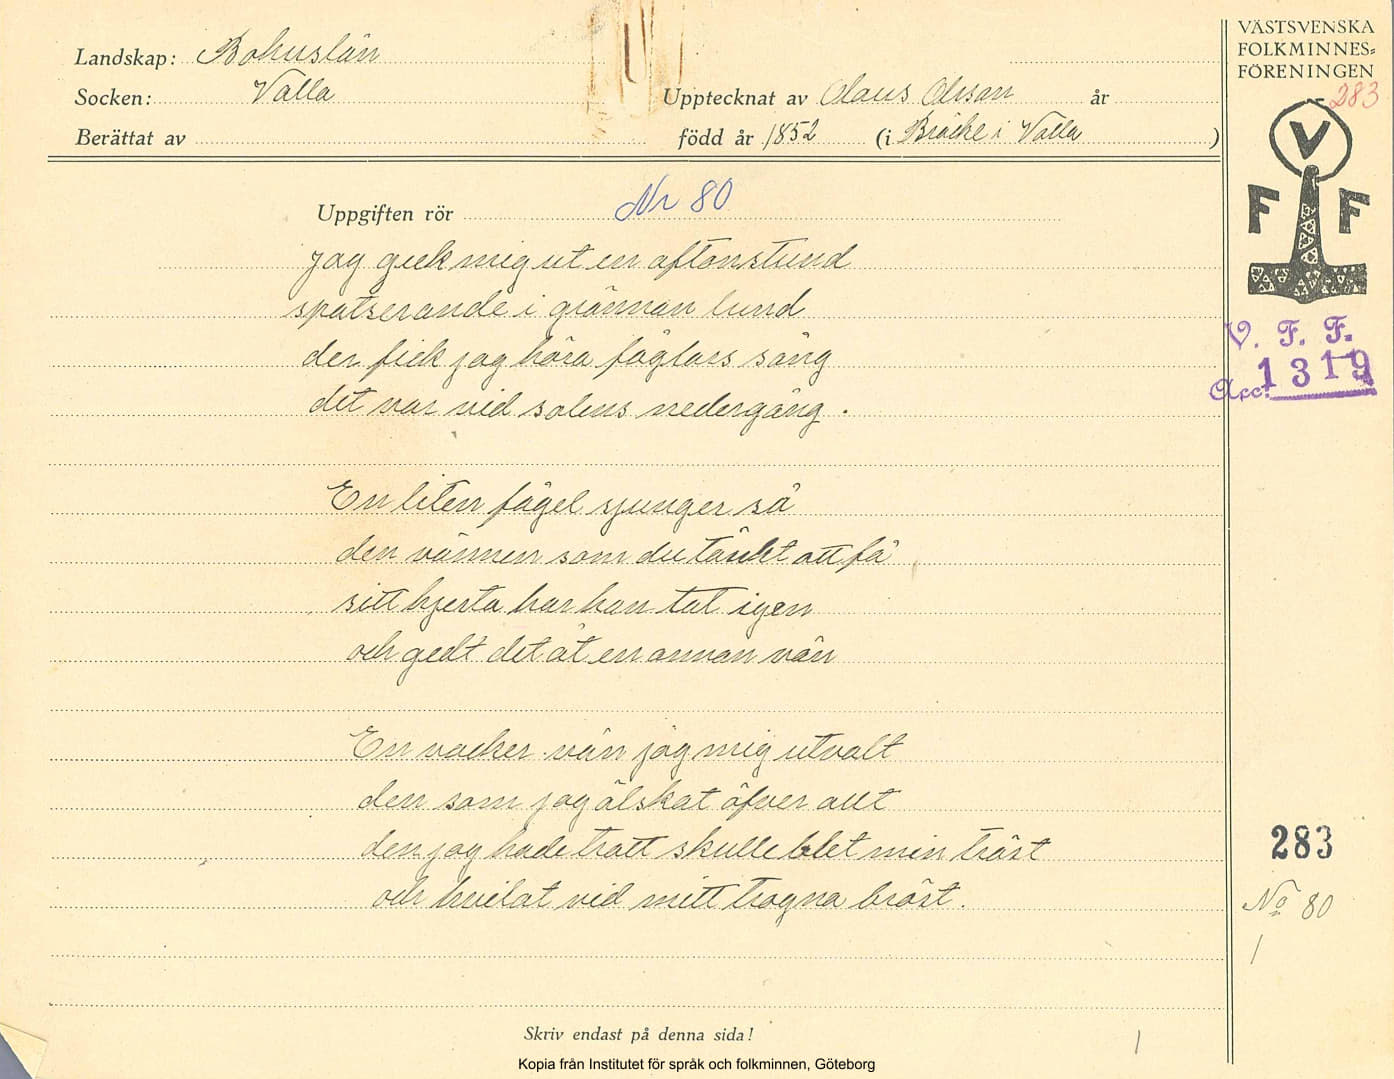 Landskap: Bohuslän
Socken: Valla
Upptecknat av Olaus Olsson år
Berättat av
född år 1852 (i Bräcke i Valla )
VÄSTSVENSKA
FOLKMINNES=
FÖRENINGEN
283
V
F F
V. F. F.
Acc. 1319
Uppgiften rör Nr 80
jag geek mig ut en aftonstund
spatserande i grännan lund
der fick jag höra foglars sång
det var vid solens nedergång.
En liten fågel sjunger så
den vännen som du tänkt att få
sitt hjerta har han tat igen
och gedt det åt en annan vän
En vacker vän jag mig utvalt
den som jag älskat öfver allt
den jag hade trott skulle blet min tröst
och hvilat vid mitt trogna bröst.
283
No 80
1
Skriv endast på denna sida!
1
Kopia från Institutet för språk och folkminnen, Göteborg